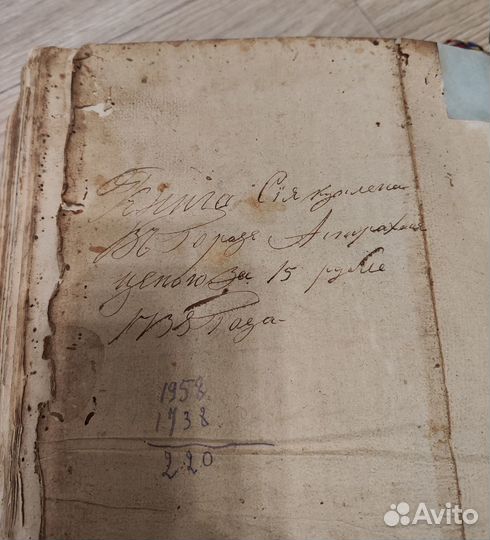 Книга Сія куплена
Въ Городе Астрахане
ценою За 15 рубле
1738 Года
1958
1738
220
Avito